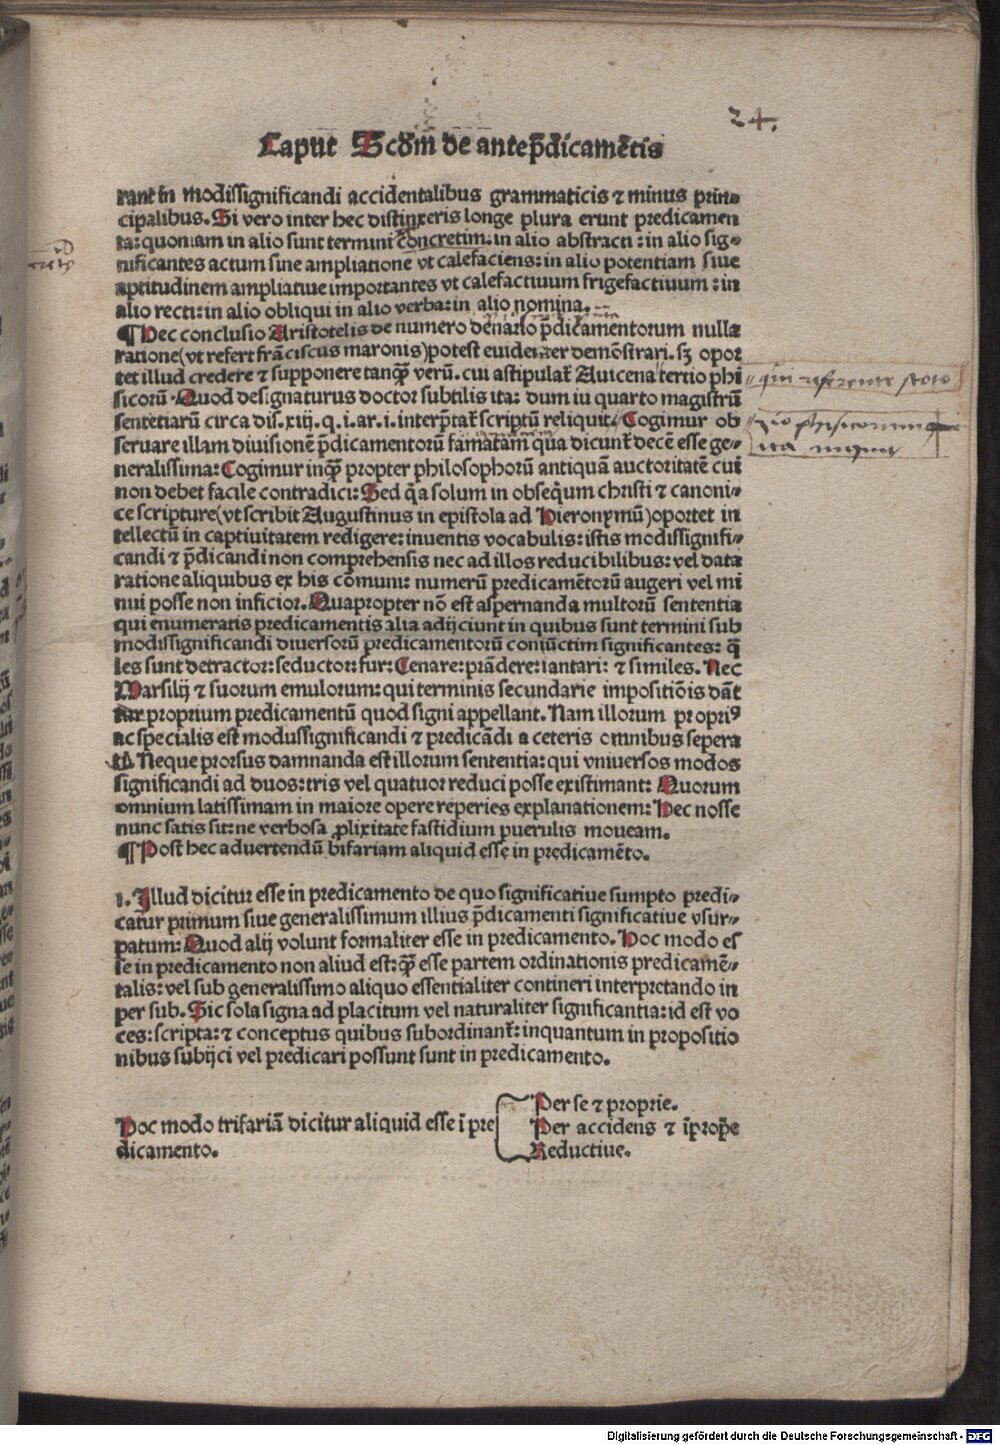 24.
Caput Scdm̃ de antep̃dicamẽtis
rant in modissignificandi accidentalibus grammaticis ⁊ minus prin⸗
cipalibus. Si vero inter hec distinxeris longe plura erunt predicamen
ta: quoniam in alio sunt termini concretim: in alio abstracti: in alio sig⸗
nificantes actum sine ampliatione vt calefaciens: in alio potentiam siue
aptitudinem ampliatiue importantes vt calefactiuum frigefactiuum: in
alio recti: in alio obliqui in alio verba: in alio nomina.
¶ Hec conclusio Aristotelis de numero denario p̃dicamentorum nulla
ratione (vt refert frãciscus maronis) potest euidenter demõstrari. sꝫ opor
tet illud credere ⁊ supponere tanq̃ȝ verũ. cui astipulat̃ Auicena tertio phi
sicorũ. Quod designaturus doctor subtilis ita: dum iu quarto magistrũ
sentẽtiarũ circa dis. xiij. q. i. ar. i. interp̃tat̃ scriptũ reliquit. Cogimur ob
seruare illam diuisionẽ p̃dicamentorũ famatam q̃a dicunt̃ decẽ esse ge⸗
neralissima: Cogimur inq̃ȝ propter philosophorũ antiquã auctoritatẽ cui
non debet facile contradici: Sed q̃a solum in obseq̃um christi ⁊ canoni⸗
ce scripture (vt scribit Augustinus in epistola ad Hieronymũ) oportet in
tellectũ in captiuitatem redigere: inuentis vocabulis: istis modissignifi⸗
candi ⁊ p̃dicandi non comprehensis nec ad illos reducibilibus: vel data
ratione aliquibus ex his cõmuni: numerũ predicamẽtorũ augeri vel mi
nui posse non inficior. Quapropter nõ est aspernanda multorũ sententia
qui enumeratis predicamentis alia adijciunt in quibus sunt termini sub
modissignificandi diuersorũ predicamentorũ coniũctim significantes: q̃
les sunt detractor: seductor: fur: Cenare: prãdere: iantari: ⁊ similes. Nec
Marsilij ⁊ suorum emulorum: qui terminis secundarie impositiõis dãt
tur proprium predicamentũ quod signi appellant. Nam illorum propriꝰ
ac specialis est modussignificandi ⁊ predicãdi a ceteris omnibus sepera
tũ. Neque prorsus damnanda est illorum sententia: qui vniuersos modos
significandi ad duos: tris vel quatuor reduci posse existimant: Quorum
omnium latissimam in maiore opere reperies explanationem: Hec nosse
nunc satis sit: ne verbosa ꝓlixitate fastidium puerulis moueam.
¶ Post hec aduertendũ bifariam aliquid esse in predicamẽto.
1. Illud dicitur esse in predicamento de quo significatiue sumpto predi⸗
catur primum siue generalissimum illius p̃dicamenti significatiue vsur⸗
patum: Quod alij volunt formaliter esse in predicamento. Hoc modo es
se in predicamento non aliud est: q̃ȝ esse partem ordinationis predicamẽ⸗
talis: vel sub generalissimo aliquo essentialiter contineri interpretando in
per sub. Sic sola signa ad placitum vel naturaliter significantia: id est vo
ces: scripta: ⁊ conceptus quibus subordinant̃: inquantum in propositio
nibus subijci vel predicari possunt sunt in predicamento.
Hoc modo trifariã dicitur aliquid esse ĩ pre
dicamento.
Per se ⁊ proprie.
Per accidens ⁊ ĩprop̃e
Reductiue.
Digitalisierung gefördert durch die Deutsche Forschungsgemeinschaft - DFG